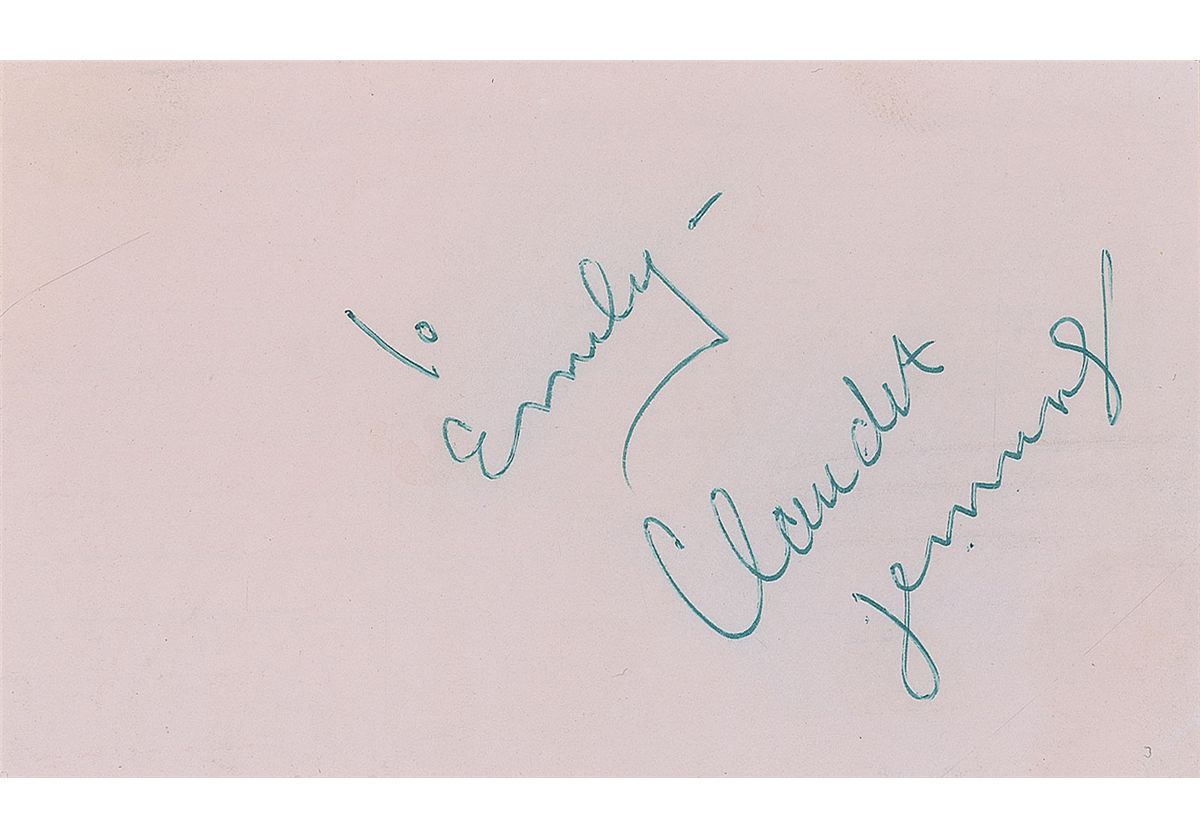 To
Emily -
Claudet
Jennings
3